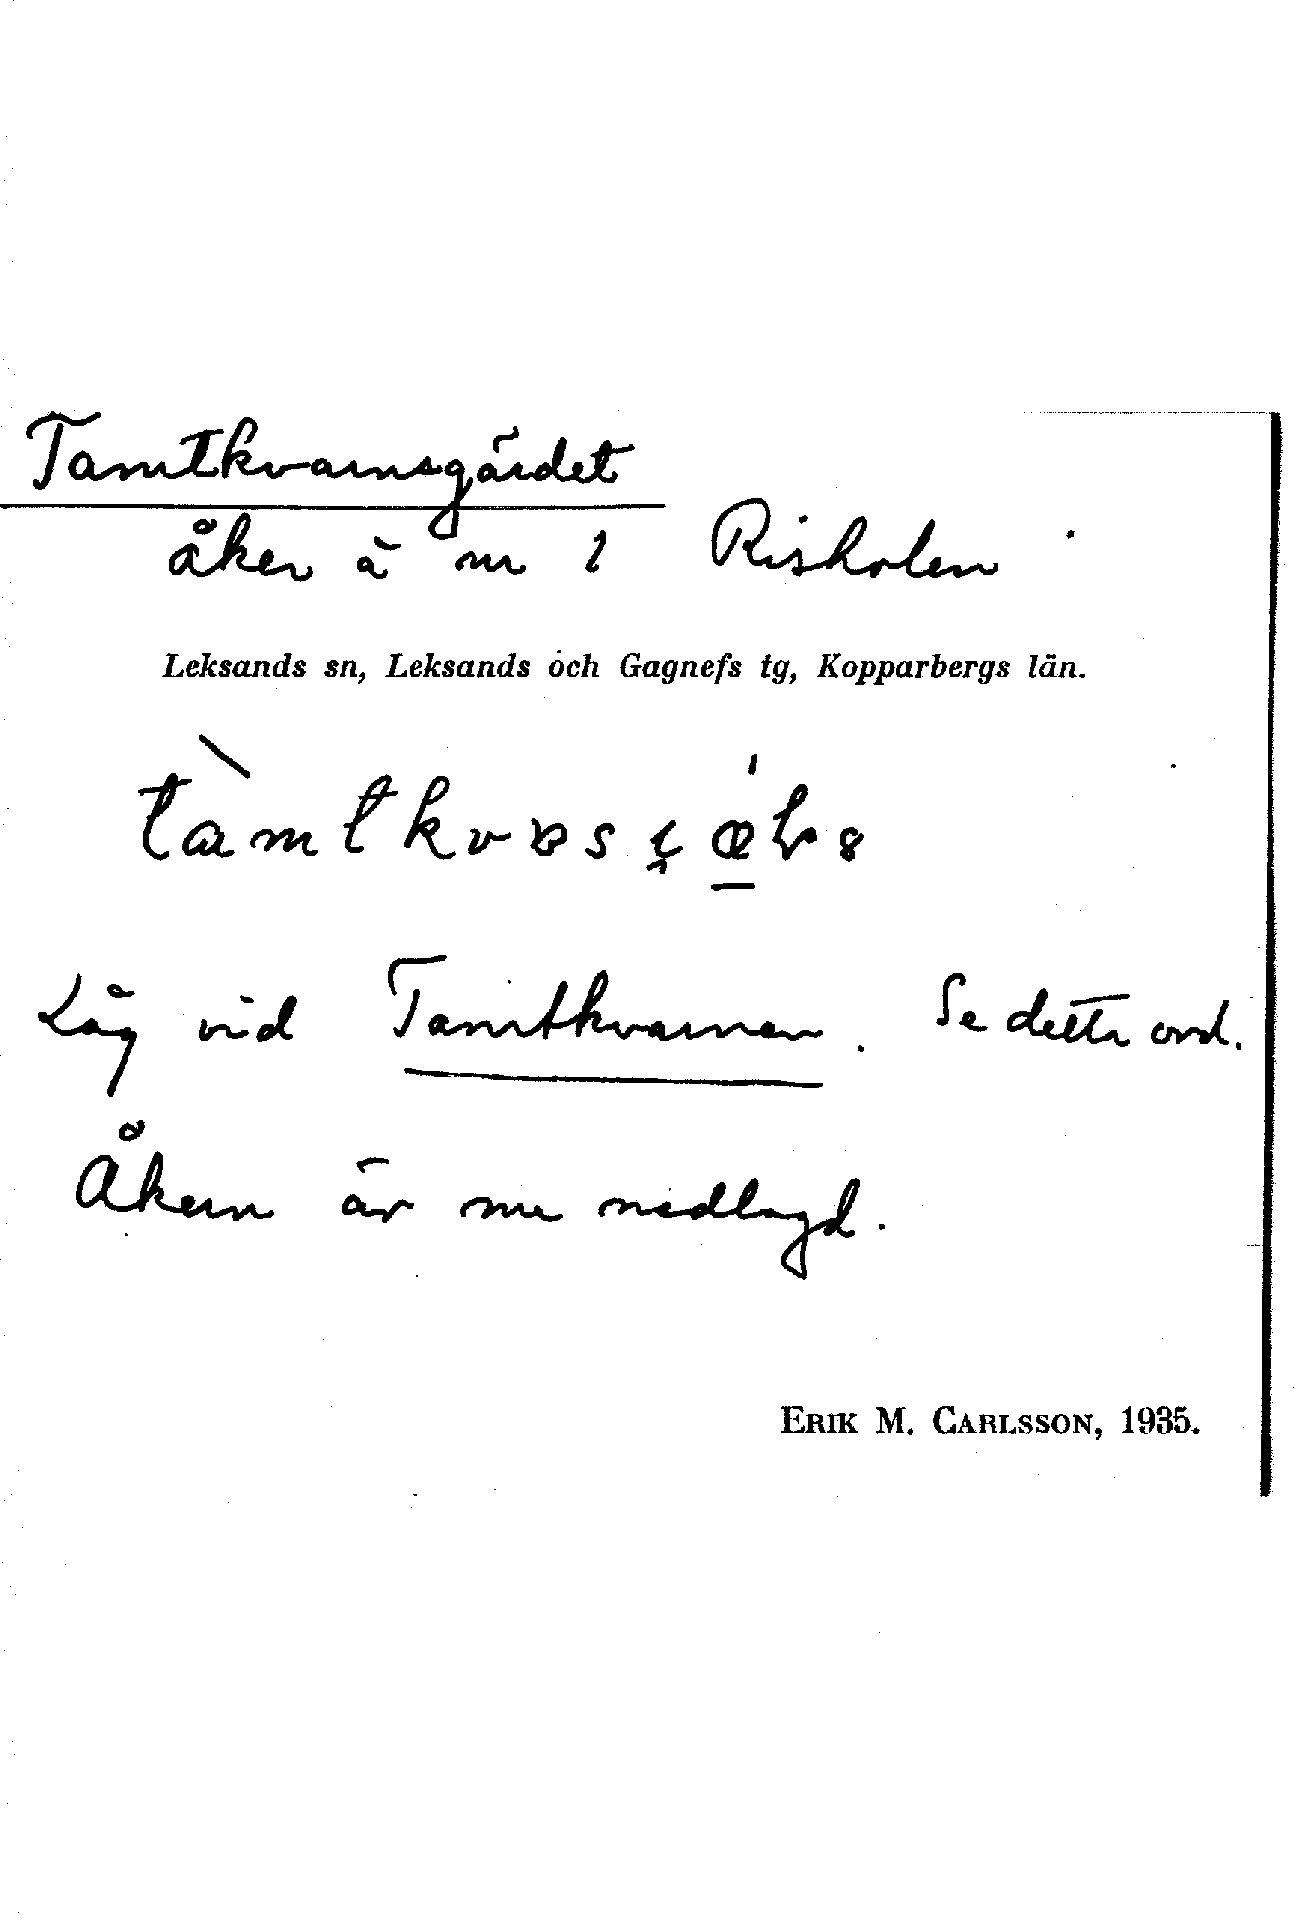 Tamtkvarnsgärdet
åker å nr 1 Risholen
Leksands sn, Leksands och Gagnefs tg, Kopparbergs län.
Låg vid Tamtkvarnen. Se detta ord.
Åkern är nu nedlagd.
ERIK M. CARLSSON, 1935.